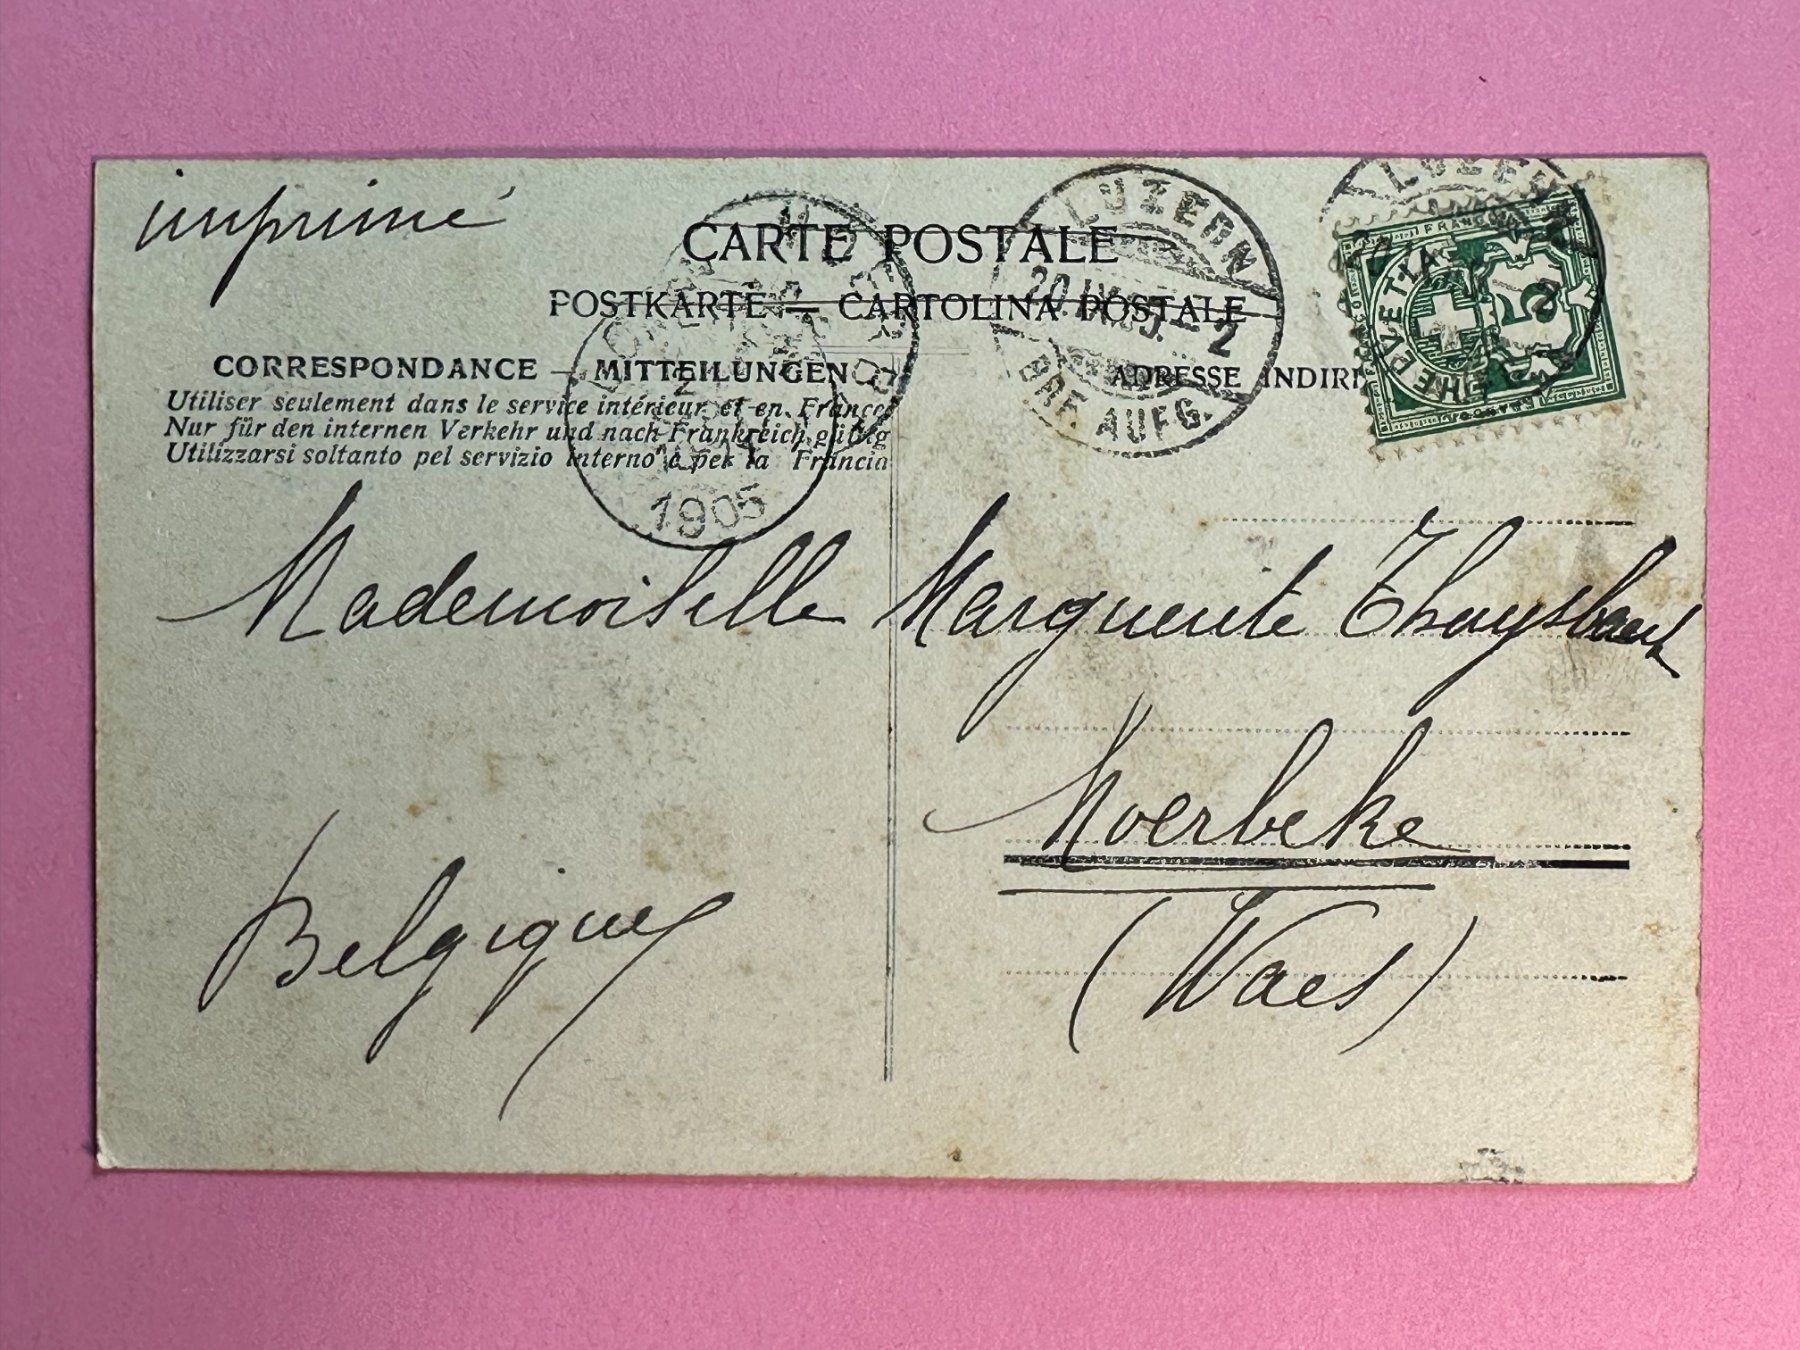 imprimé
CARTE POSTALE
POSTKARTE — CARTOLINA POSTALE
CORRESPONDANCE — MITTEILUNGEN
Utiliser seulement dans le service intérieur et en France
Nur für den internen Verkehr und nach Frankreich gültig
Utilizzarsi soltanto pel servizio interno e per la Francia
ADRESSE INDIRI
LUZERN
BRF. AUFG.
1905
LUZERN
FRANCO
HELVETIA
5
Mademoiselle Marguerite Thuysbaert
Moerbeke
(Waes)
Belgique